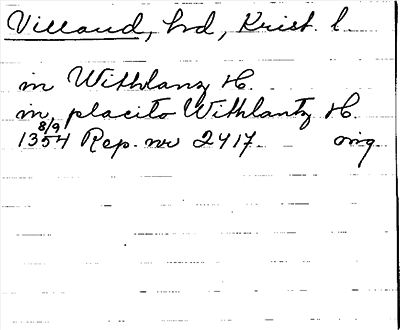 Villand, hd, Krist. l.
in Withlanz H.
in placito Withlantz H.
8/9
1354 Rep. nr 2417. orig